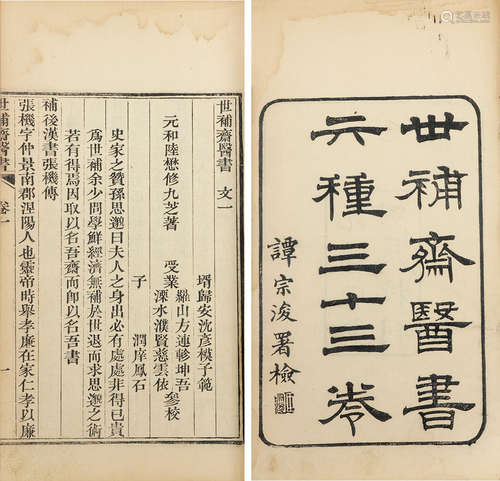 世補齋醫書
六種三十三卷
譚宗浚署檢
世補齋醫書 文一
壻歸安沈彥模子範
元和陸懋修九芝著 受業
羅山方連軫坤吾
溧水濮賢慈雲依
參校
子 潤庠鳳石
史家之贊孫思邈曰夫人之身出必有處處非得已貴
為世補余少問學鮮經濟無補於世退而求思邈之術
若有得焉因取以名吾齋而即以名吾書
補後漢書張機傳
張機字仲景南郡涅陽人也靈帝時舉孝廉在家仁孝以廉
世補齋醫書 卷一 一